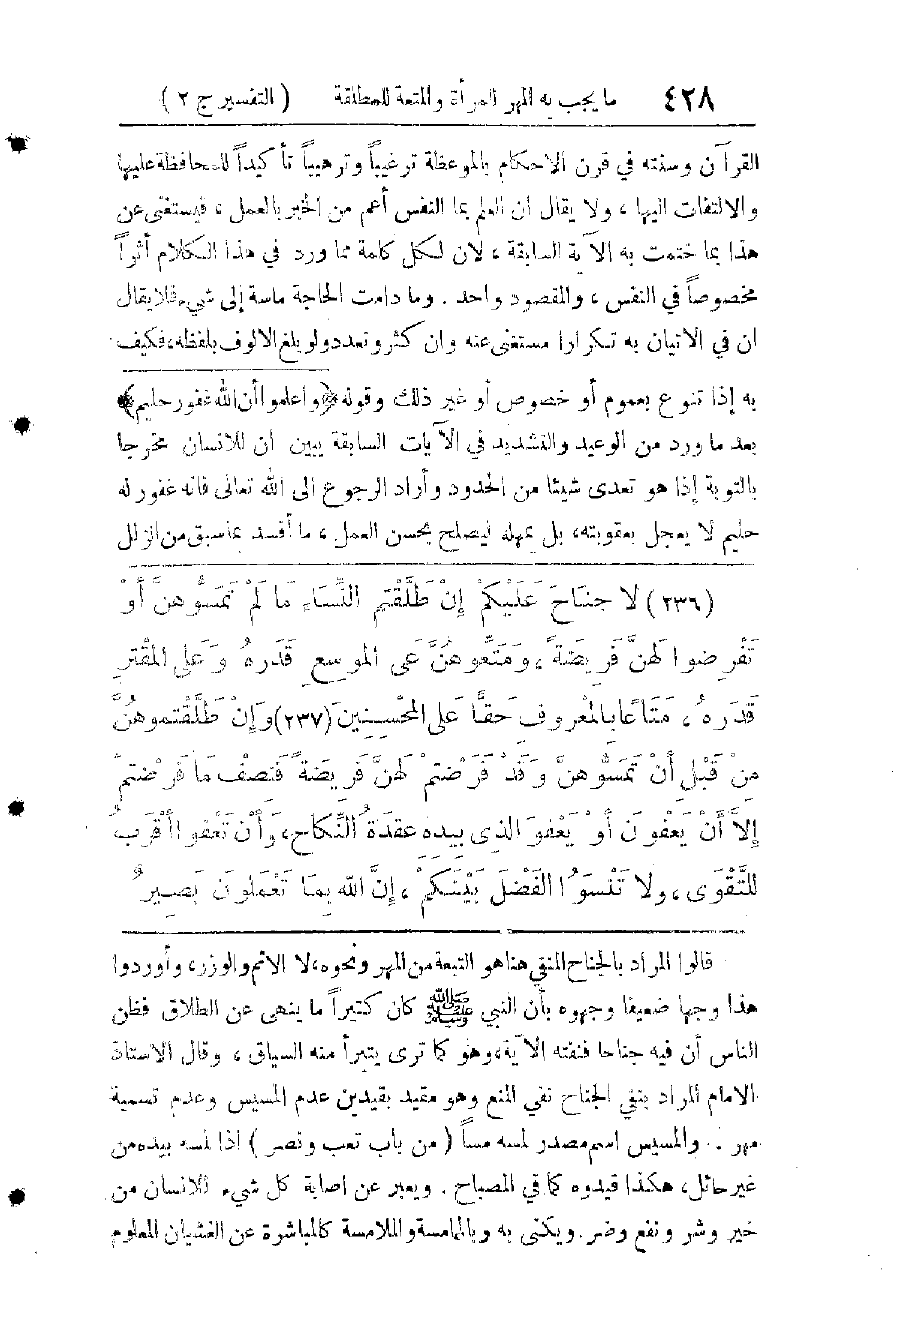 ٤٢٨ ما يجب به المهر للمرأة والمتعة للمطلقة ( التفسير ج ٢ )
القرآن وسنته في قرن الاحكام بالموعظة ترغيباً وترهيباً تأكيداً للمحافظة عليها
والالتفات اليها ، ولا يقال ان العلم بما النفس أعم من الخبر بالعمل ، فيستغنى عن
هذا بما ختمت به الآية السابقة ، لان لكل كلمة مما ورد في هذا الكلام أثراً
مخصوصاً في النفس ، والمقصود واحد . وما دامت الحاجة ماسة إلى شيء فلا يقال
ان في الاتيان به تكرارا مستغنى عنه وان كثر وتعدد ولو بلغ الالوف بلفظه، فكيف
به إذا تنوع بعموم أو خصوص أو غير ذلك وقوله ﴿واعلموا أن الله غفور حليم﴾
بعد ما ورد من الوعيد والتشديد في الآيات السابقة يبين أن للانسان مخرجا
بالتوبة إذا هو تعدى شيئا من الحدود وأراد الرجوع الى الله تعالى فانه غفور له
حليم لا يعجل بعقوبته، بل يمهله ليصلح بحسن العمل ، ما أفسد بما سبق من الزلل
(٢٣٦) لا جنَاحَ عَلَيْكمْ إِنْ طَلَّقْتم النِّسَاءَ مَا لَمْ تمَسُّوهنَّ أوْ
تَفْرِضوا لهنَّ فَرِيضَةً، وَمَتِّعوهُنَّ عَلى الموسعِ قَدَرهُ وَعَلى المقْترِ
قَدَرهُ ، مَتَاعًا بالمَعْروفِ حَقًّا عَلى المحْسِنِينَ (٢٣٧) وَإِنْ طَلَّقْتموهُنَّ
مِنْ قَبْلِ أَنْ تمَسُّوهنَّ وَقَدْ فَرَضْتمْ لهنَّ فَرِيضَةً فَنصْف مَا فَرَضتمْ
إِلاَّ أَنْ يَعْفونَ أوْ يَعْفوَ الذِى بيدِهِ عقدَةُ النِّكاحِ، وَأَنْ تَعْفوا أقْرَبُ
للتَّقْوَى ، ولا تَنْسَوُا الفَضْلَ بَيْنَكمْ ، إِنَّ اللهَ بِمَا تَعْمَلونَ بَصِيرٌ
قالوا المراد بالجناح المنفي هنا هو التبعة من المهر ونحوه، لا الاثم والوزر، وأوردوا
هذا وجها ضعيفا وجهوه بأن النبي ﷺ كان كثيراً ما ينهى عن الطلاق فظن
الناس أن فيه جناحا فنفته الآية، وهو كما ترى يتبرأ منه السياق ، وقال الاستاذ
الامام المراد بنفي الجناح نفي المنع وهو مقيد بقيدين عدم المسيس وعدم تسمية
مهر . والمسيس اسم مصدر لمسه مساً ( من باب تعب ونصر ) اذا لمسه بيده من
غير حائل، هكذا قيدوه كما في المصباح . ويعبر عن اصابة كل شيء للانسان من
خير وشر ونفع وضر. ويكنى به وبالمماسة والملامسة كالمباشرة عن الغشيان المعلوم